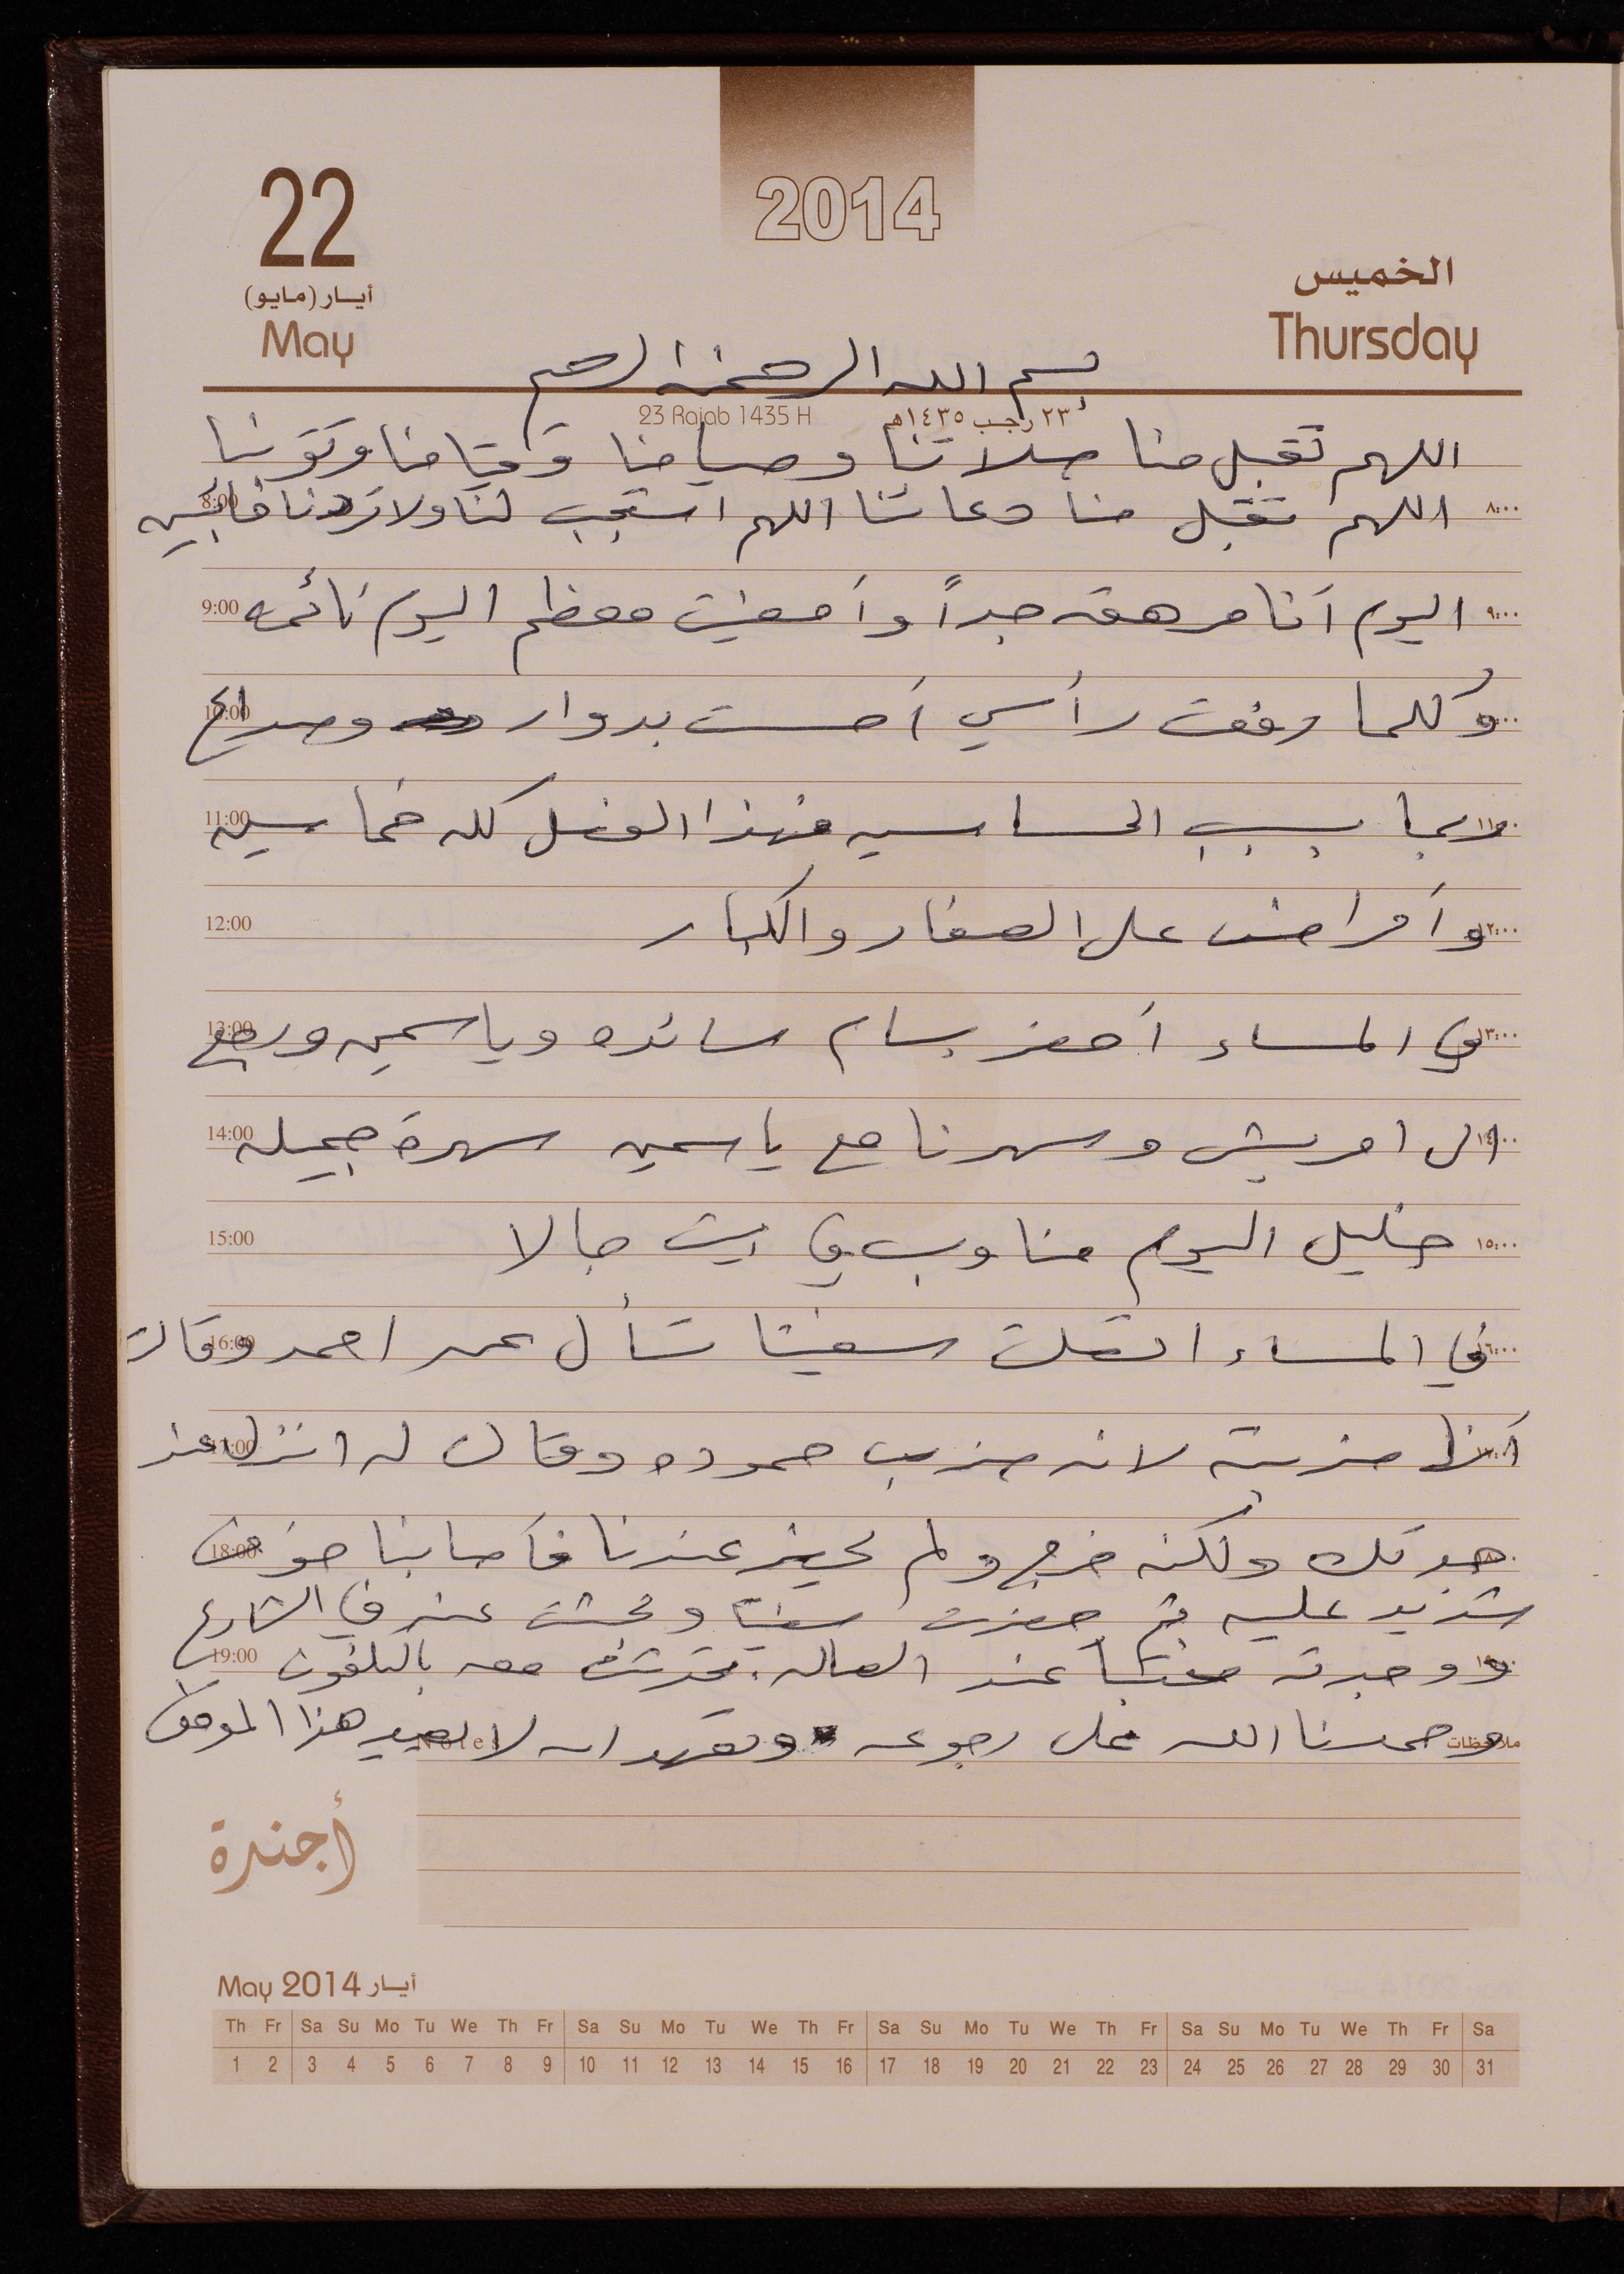 2014
22
أيـار (مـايـو)
May
الخميس
Thursday
بسم الله الرحمن الرحيم
23 Rajab 1435 H
٢٣ رجب ١٤٣٥هـ
اللهم تقبل منا صلاتنا وصيامنا وقيامنا وتوبنا
8:00 اللهم تقبل منا دعائنا اللهم استجب لنا ولا تردنا خائبين ٨:٠٠
9:00 اليوم أنا مرهقه جداً وأمضيت معظم اليوم نائمه ٩:٠٠
10:00 وكلما رفعت رأسي أحسست بدوار وصداع
11:00 ربما بسبب الحساسيه فهذا الفصل كله خماسين ١١:٠٠
12:00 وأمراض على الصغار والكبار ١٢:٠٠
13:00 في المساء أحضر بسام سائده وياسمين ورجع ١٣:٠٠
14:00 الى امريش وسهرنا مع ياسمين سهرة جميله ١٤:٠٠
15:00 خليل اليوم مناوب في بيت جالا ١٥:٠٠
16:00 في المساء اتصلت سفيتا تسأل عن احمد وقالت ١٦:٠٠
17:00 أنها حزينة لانه ضرب حموده وقال له انزل عند
18:00 جدتك ولكنه خرج ولم يحضر عندنا فأصابنا خوف
شديد عليه ثم حضرت سفيتا وبحثت عنه في الشارع
19:00 ووجدته مختبأ عند العماله. تحدثت معه بالتلفون
وحمدنا الله على رجوعه وتعهد ان لا يعيد هذا الموقف
Notes
ملاحظات
أجندة
May 2014 أيـار
Th Fr Sa Su Mo Tu We Th Fr Sa Su Mo Tu We Th Fr Sa Su Mo Tu We Th Fr Sa Su Mo Tu We Th Fr Sa
1 2 3 4 5 6 7 8 9 10 11 12 13 14 15 16 17 18 19 20 21 22 23 24 25 26 27 28 29 30 31